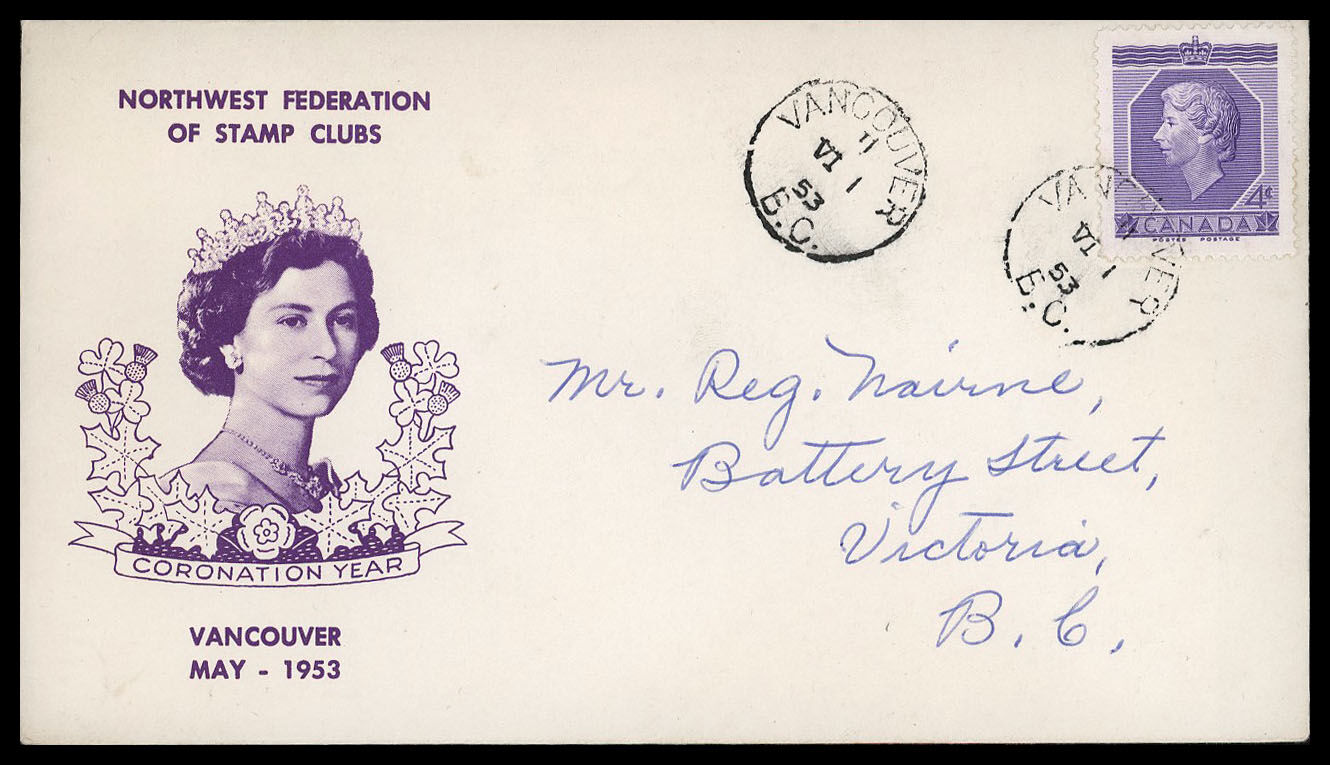 NORTHWEST FEDERATION
OF STAMP CLUBS
CORONATION YEAR
VANCOUVER
MAY - 1953
VANCOUVER
11
IA
1
53
B.C.
VANCOUVER
11
IA
1
53
B.C.
4¢
CANADA
POSTES POSTAGE
Mr. Reg. Nairne,
Battery Street,
Victoria,
B.C.